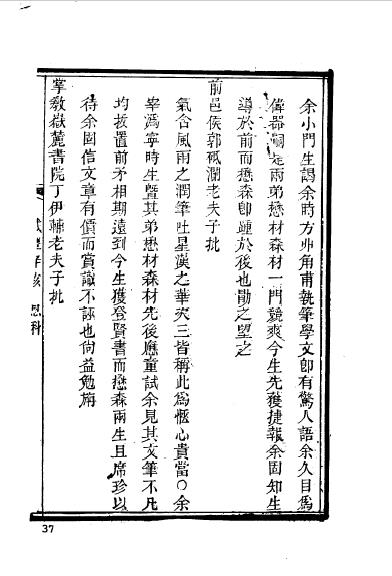 余小門生謁余時方丱角甫執筆學文卽有驚人語余久目爲
偉器嗣是兩弟懋材森材一門競爽今生先獲捷報余固知生
導於前而懋森卽踵於後也勖之望之
前邑侯郭瓞瀾老夫子批
氣含風雨之潤筆吐星漢之華夾三皆稱此爲愜心貴當○余
宰溈寧時生曁其弟懋材森材先後應童試余見其文筆不凡
均拔置前矛相期遠到今生獲登賢書而懋森兩生且席珍以
待余固信文章有價而賞識不誣也尚益勉旃
掌敎嶽麓書院丁伊輔老夫子批
恩科
37